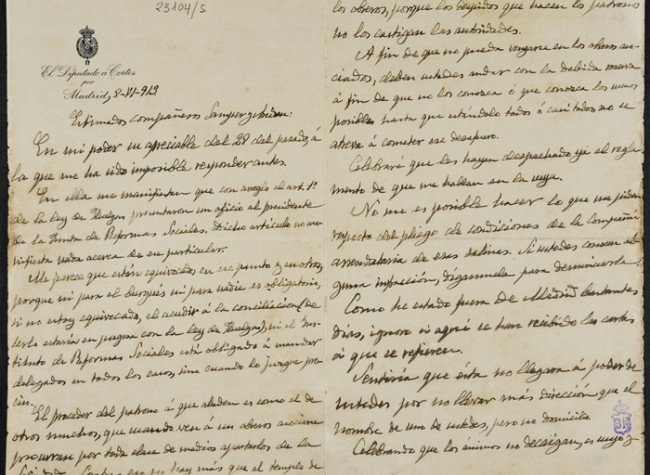 23104/5
El Diputado a Cortes
por
Madrid, 8-VI-913
Estimados compañeros Samper y
En mi poder su apreciable del 28 del pasado, á
la que me ha sido imposible responder antes.
En ella me manifiestan que con arreglo al art. 1º
de la ley de Huelgas presentaron un oficio al presidente
de la Junta de Reformas Sociales. Dicho artículo no ma-
nifiesta nada acerca de ese particular.
Me parece que están equivocados en ese punto y en otros,
porque ni para el burgués ni para nadie es obligatorio,
si no estoy equivocado, el acudir á la conciliación (de
serlo estaría en pugna con la ley de Huelgas), ni el Ins-
tituto de Reformas Sociales está obligado á mandar
delegados en todos los casos, sino cuando lo juzgue pre-
ciso.
El proceder del patrono á que aluden es como el de
otros muchos, que cuando ven á un obrero
procuran por toda clase de medios apartarlos de la
no hay más que el temple de
los obreros, porque los despidos que hacen los patronos
no los castigan las autoridades.
A fin de que no pueda vengarse en los obreros aso-
ciados, deben ustedes andar con la debida reserva
á fin de que no los conozca ó que conozca los menos
posibles hasta que uniéndolos todos ó casi todos no se
atreva á cometer ese desafuero.
Celebraré que les hayan despachado ya el regla-
mento de que me hablan en la suya.
No me es posible hacer lo que me piden
respecto del pliego de condiciones de la Compañía
arrendataria de esas salinas. Si ustedes conocen al-
guna infracción, díganmela para denunciarla
Como he estado fuera de Madrid bastantes
días, ignoro si aquí se han recibido las cartas
á que se refieren.
Sentiría que ésta no llegara á poder de
ustedes por no llevar más dirección que el
nombre de uno de ustedes, pero no domicilio.
Celebrando que los ánimos no decaigan, es suyo y